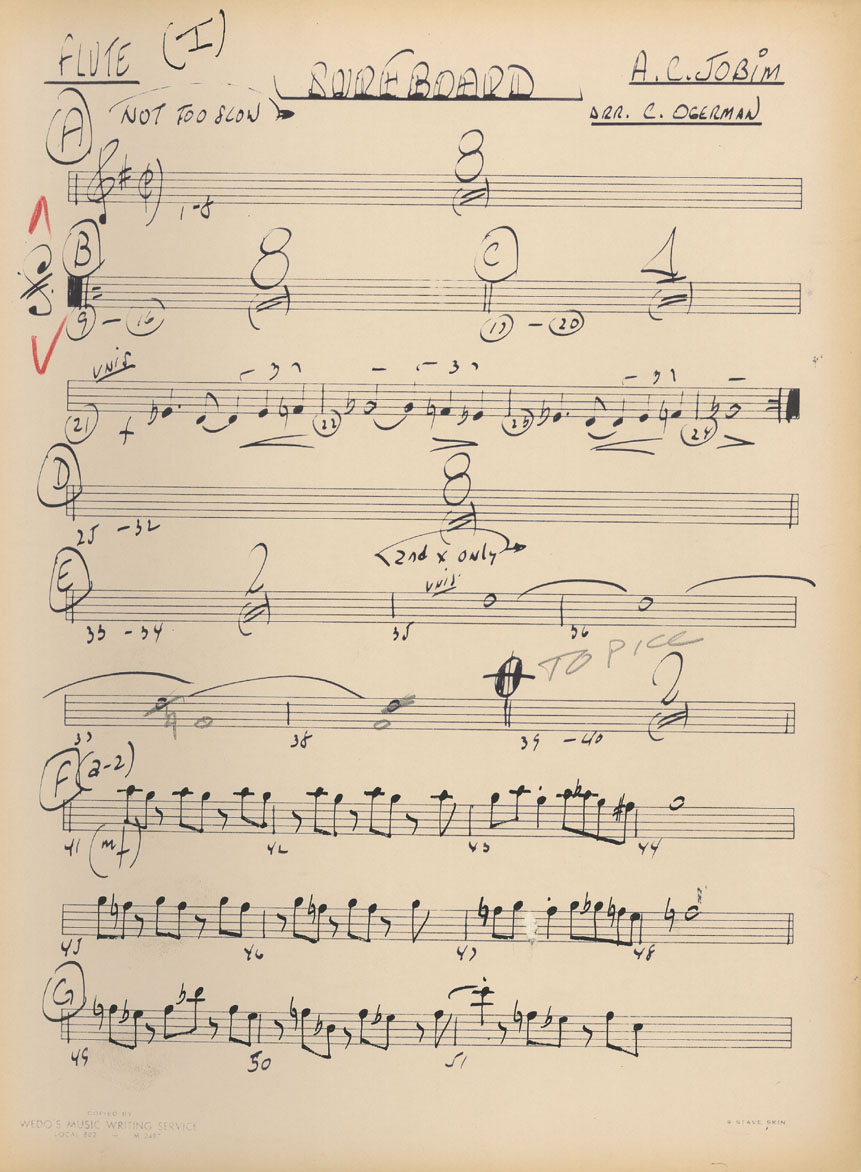 FLUTE (I) SURFBOARD A.C. JOBIM
A NOT TOO SLOW ARR. C. OGERMAN
8
1-8
B 8 C 4
9 - 16 17 - 20
UNIS 3 3 3
21 f 22 23 24
D 8
25 - 32
2nd x only
E 2 UNIS
33 - 34 35 36
TO PICC
2
37 38 39 - 40
F (a-2)
41 (mf) 42 43 44
45 46 47 48
G
49 50 51
COPIED BY
WEDO'S MUSIC WRITING SERVICE
LOCAL 802 - M 2487
9 STAVE SKIN